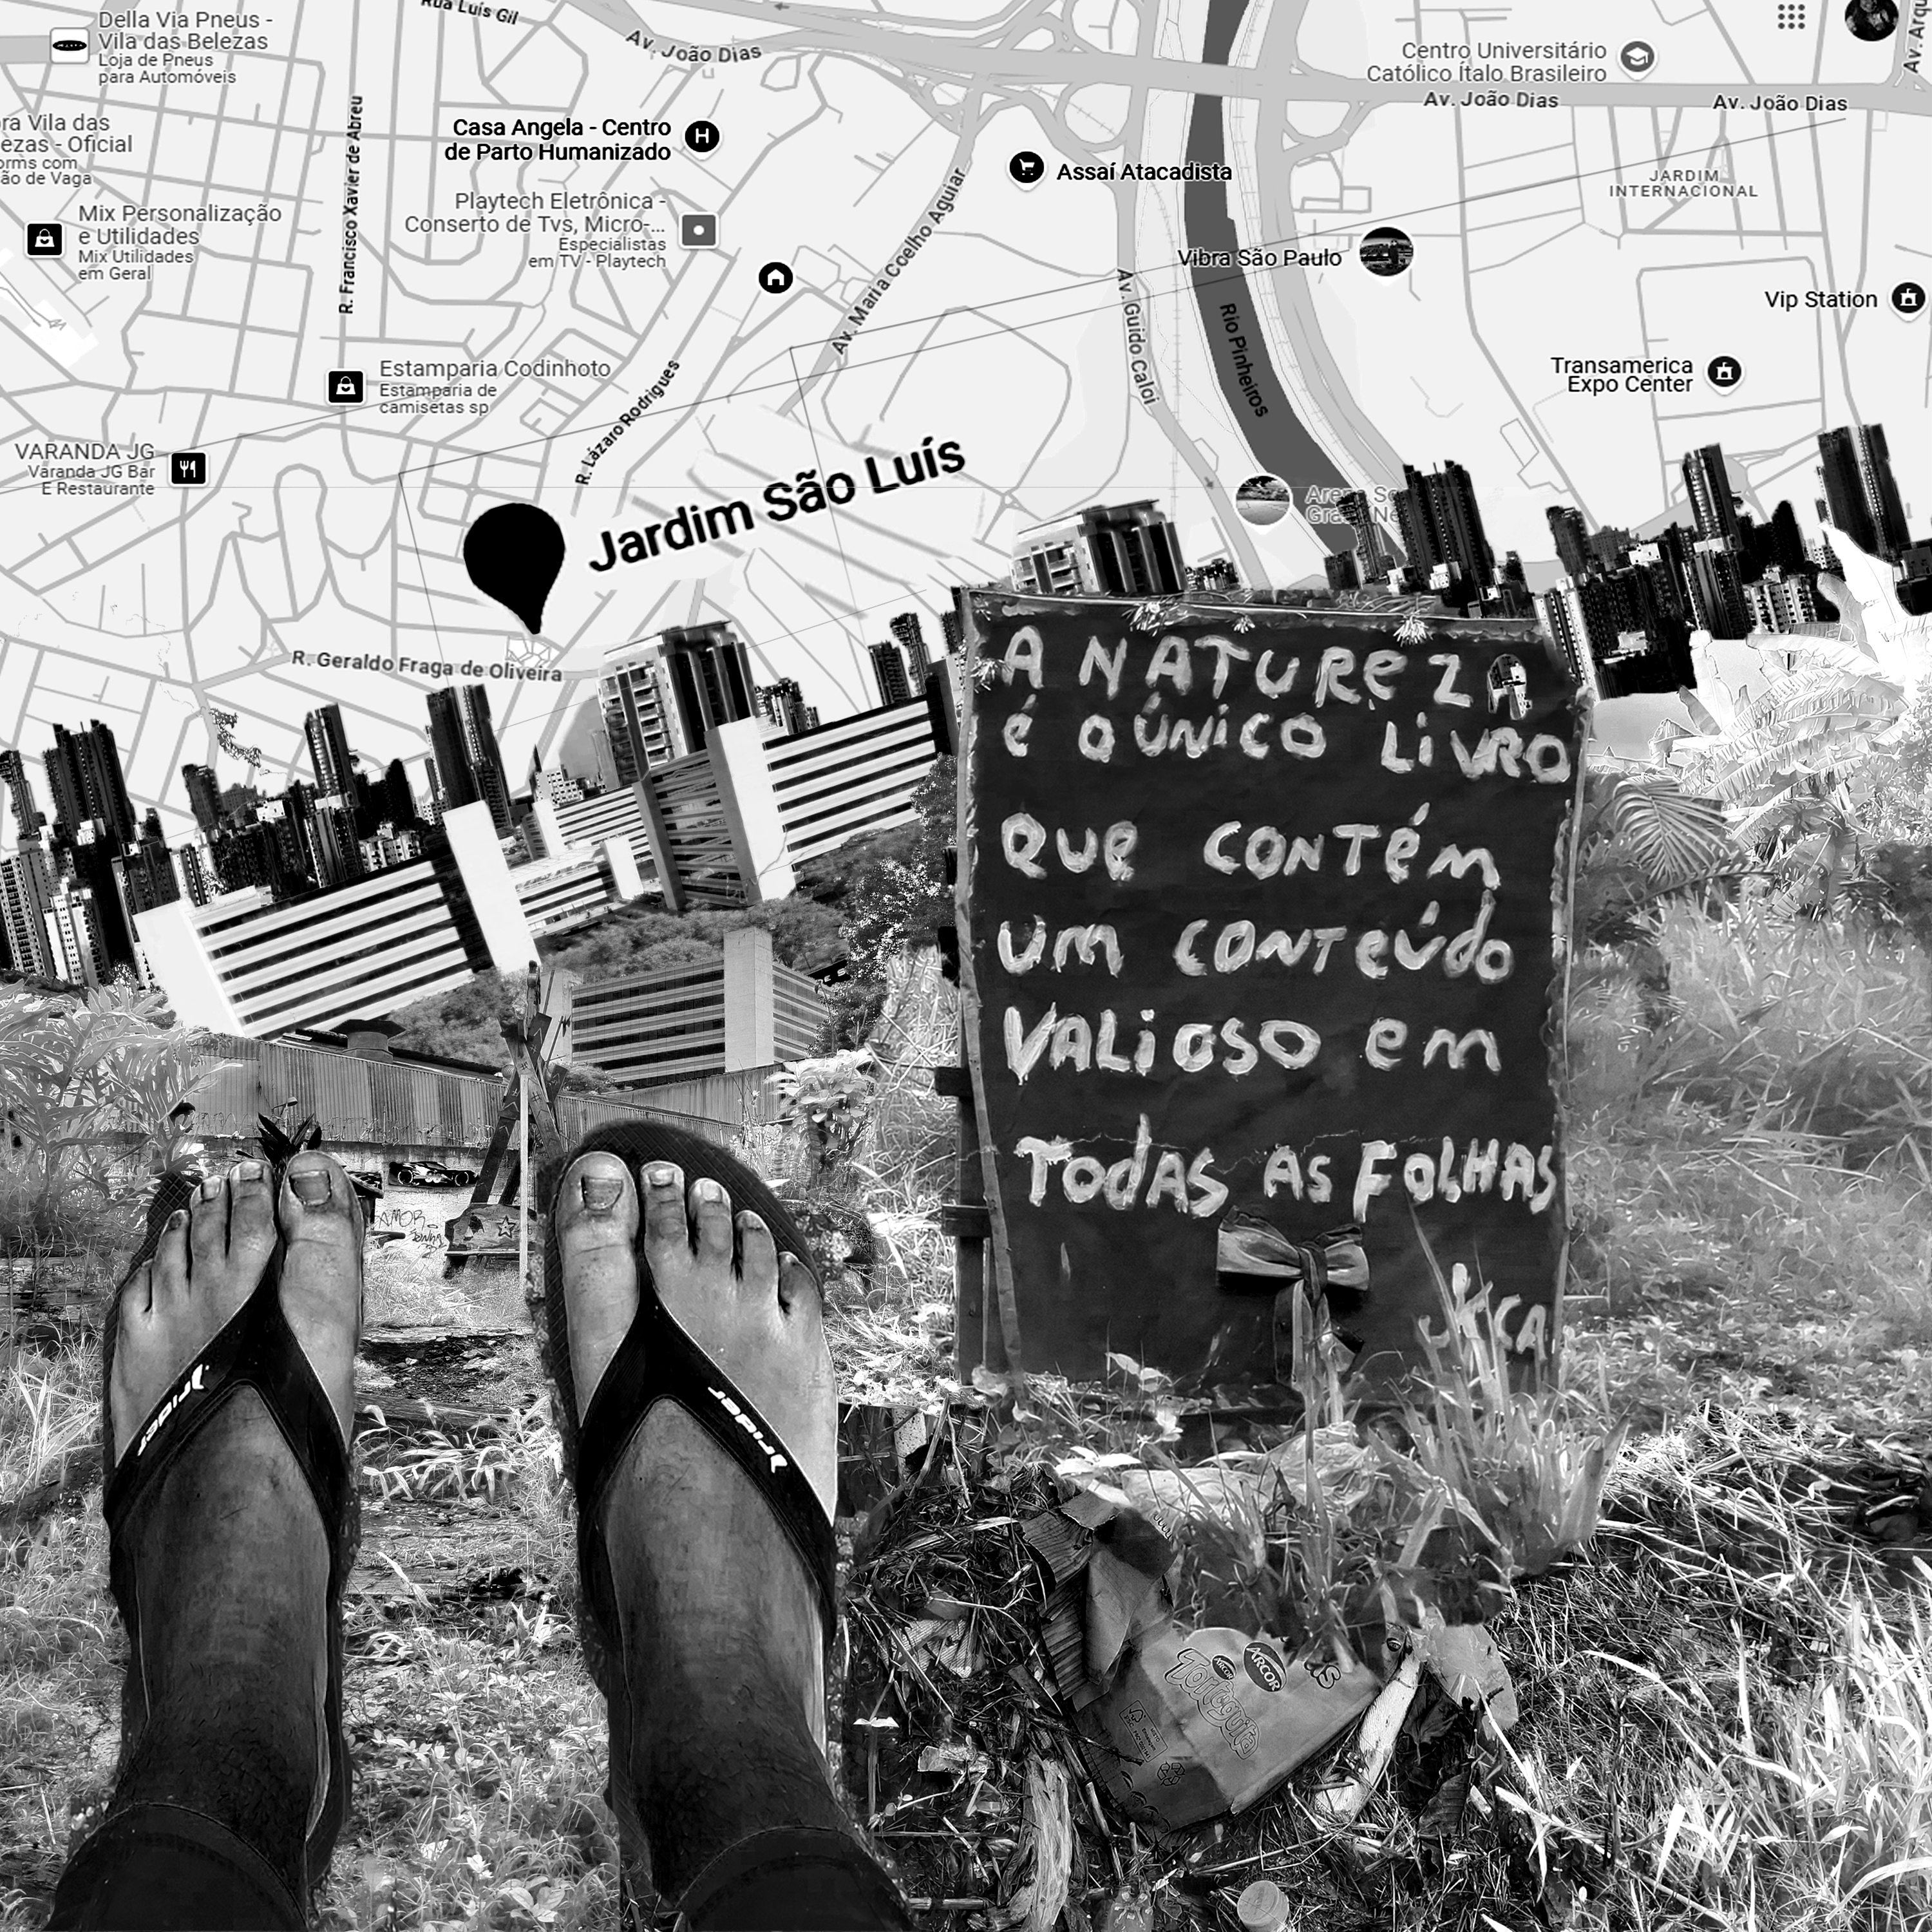 Della Via Pneus -
Vila das Belezas
Loja de Pneus
para Automóveis
Rua Luís Gil
Av. João Dias
Centro Universitário
Católico Ítalo Brasileiro
Av. João Dias
Av. João Dias
ra Vila das
ezas - Oficial
orms com
ão de Vaga
R. Francisco Xavier de Abreu
Casa Angela - Centro
de Parto Humanizado
Assaí Atacadista
JARDIM
INTERNACIONAL
Mix Personalização
e Utilidades
Mix Utilidades
em Geral
Playtech Eletrônica -
Conserto de Tvs, Micro-...
Especialistas
em TV - Playtech
Av. Maria Coelho Aguiar
Vibra São Paulo
Av. Guido Caloi
Rio Pinheiros
Vip Station
Estamparia Codinhoto
Estamparia de
camisetas sp
R. Lázaro Rodrigues
Transamerica
Expo Center
VARANDA JG
Varanda JG Bar
E Restaurante
Jardim São Luís
R. Geraldo Fraga de Oliveira
A NATUREZA
é O ÚNICO LIVRO
QUE CONTÉM
UM CONTEÚDO
VALIOSO em
TODAS AS FOLHAS
AMOR
rider
rider
ARCOR
ARCOR
Tortuguita